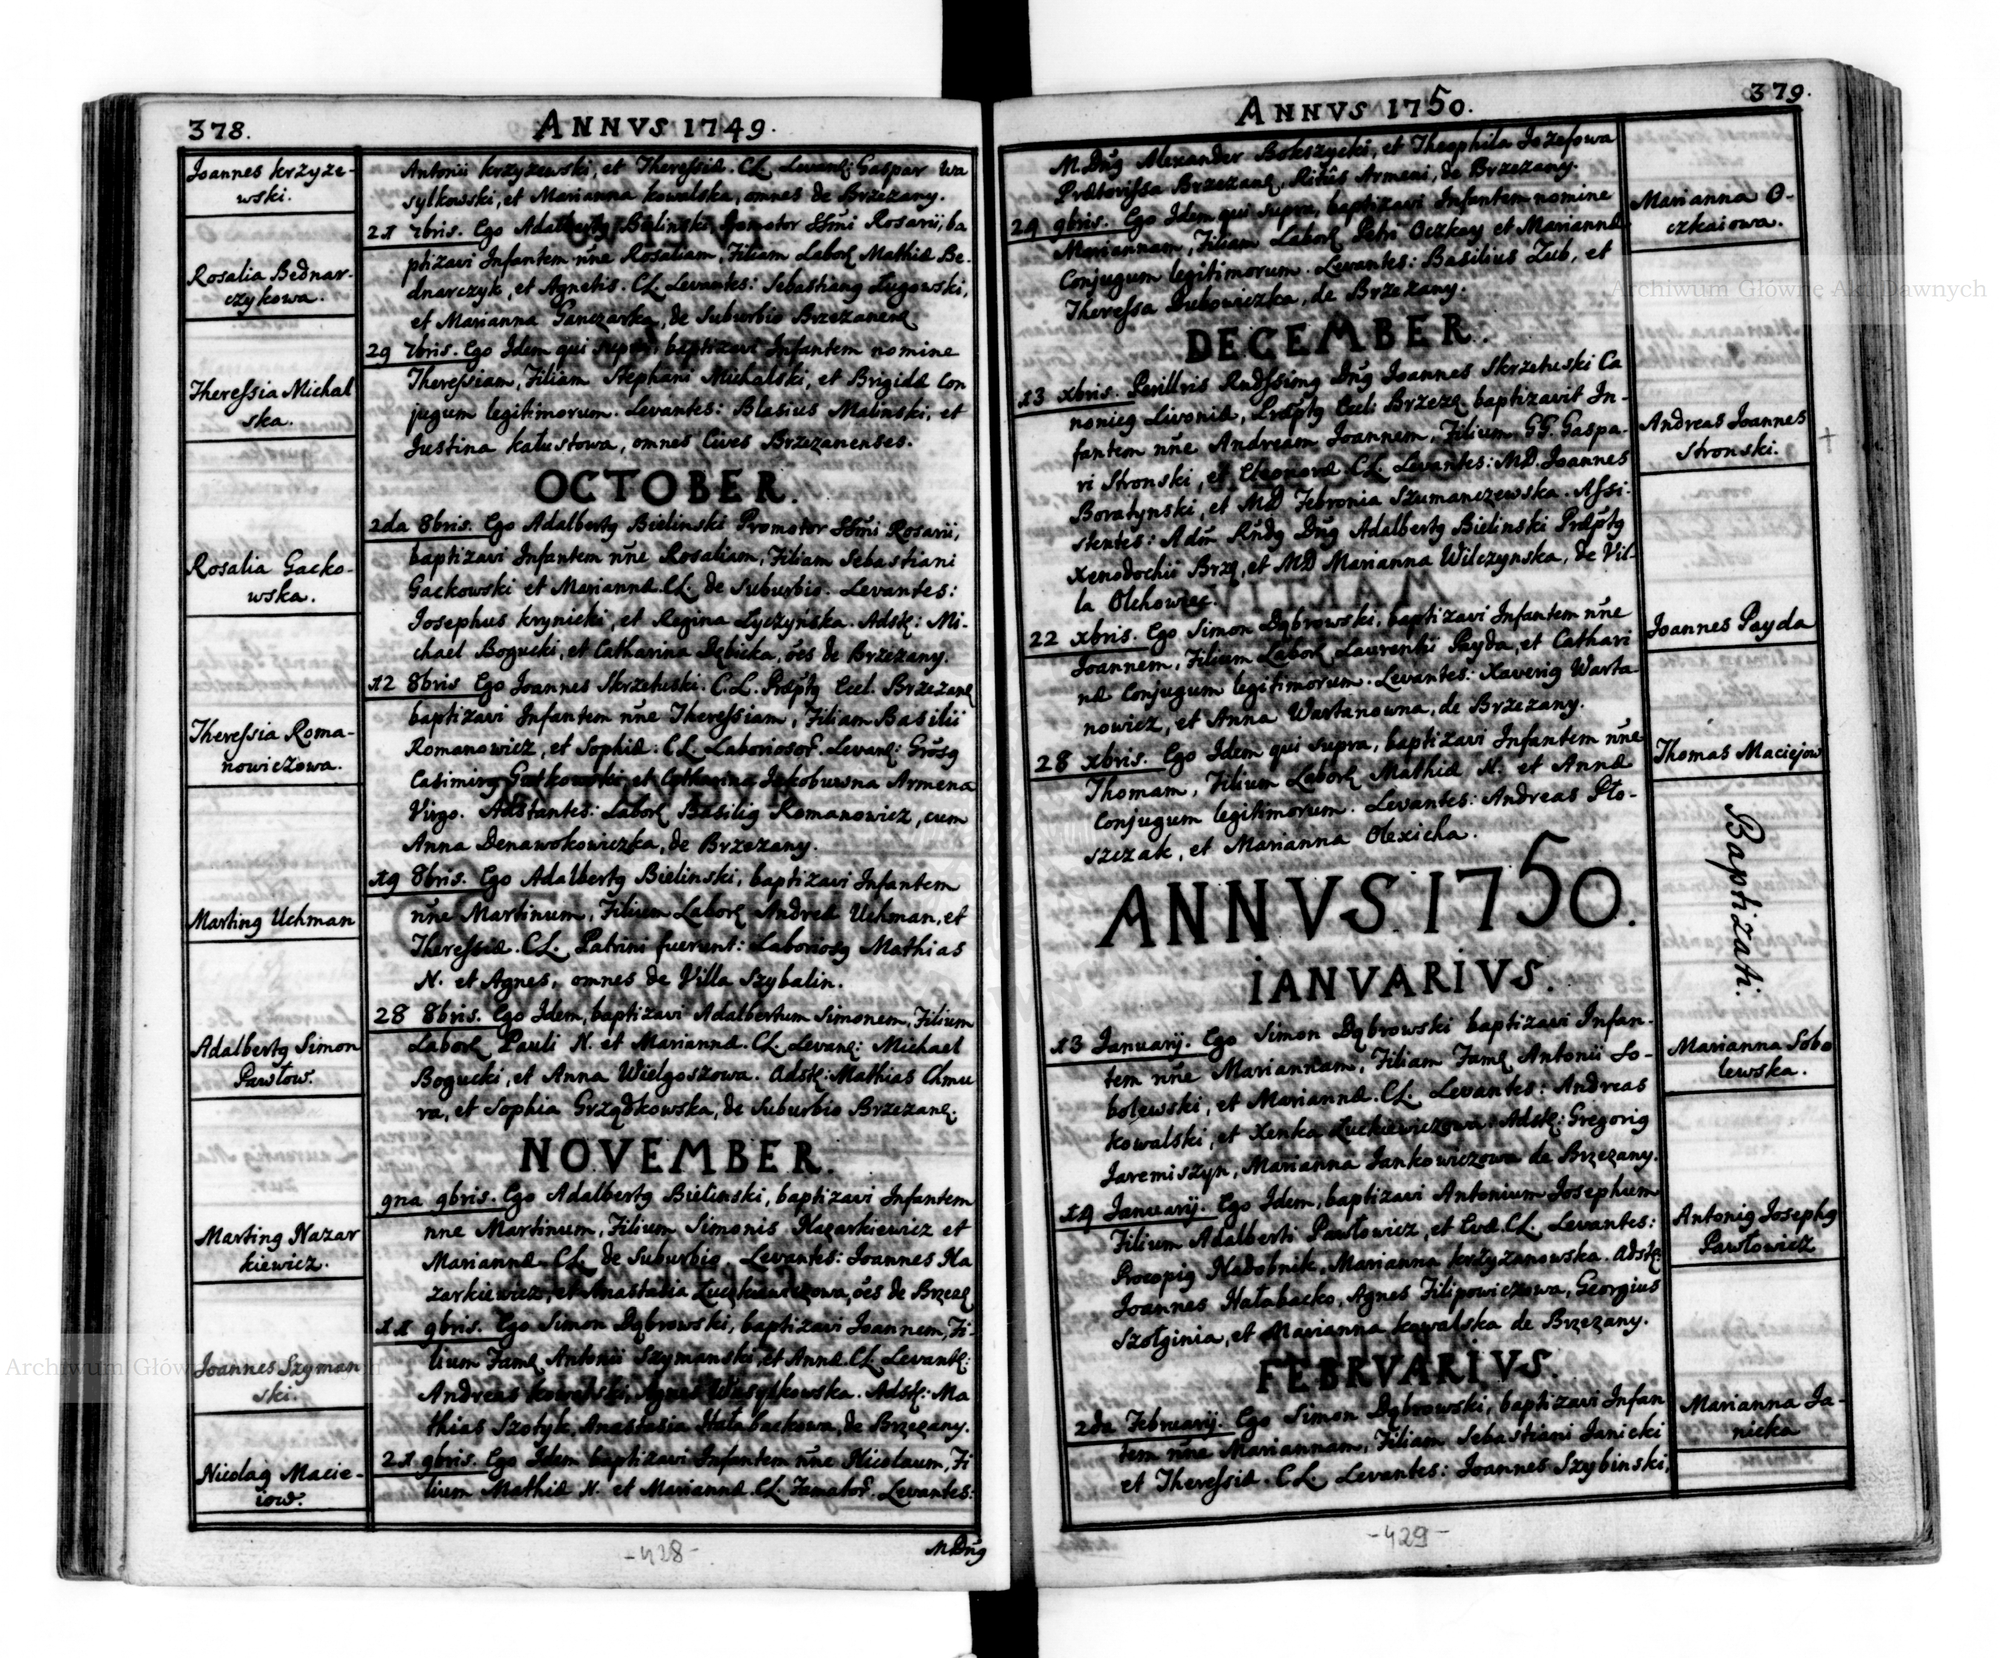 378.
ANNVS 1749.
Joannes Krzyże-
wski.
Antonii Krzyżewski, et Theressiæ. CL. Levanꝗ: Gaspar Wa
sylkowski, et Marianna Kowalska, omnes de Brzeżany.
Rosalia Bednar-
czykowa.
21 7bris. Ego Adalbertꝯ Bielinski Promotor SSmi Rosarii, ba
ptizavi Infantem nn̄e Rosaliam, Filiam Laborꝗ Mathiæ Be-
dnarczyk, et Agnetis. CL. Levantes: Sebastianꝯ Ługowski,
et Marianna Ganczarka, de Suburbio Brzeżanenꝗ
Theressia Michal
ska.
29 7bris. Ego Idem qui supra, baptizavi Infantem nomine
Theressiam, Filiam Stephani Michalski, et Brigidæ Con
jugum legitimorum. Levantes: Blasius Malinski, et
Justina Kałustowa, omnes Cives Brzeżanenses.
OCTOBER.
Rosalia Gacko-
wska.
2da 8bris. Ego Adalbertꝯ Bielinski Promotor SSmi Rosarii,
baptizavi Infantem nn̄e Rosaliam, Filiam Sebastiani
Gackowski et Mariannæ. CL. de Suburbio. Levantes:
Josephus Krynicki, et Regina Łyczyńska. Adstꝗ: Mi-
chael Bogucki, et Catharina Dębicka, ōes de Brzeżany.
Theressia Roma-
nowiczowa.
12 8bris Ego Joannes Skrzetuski. C. L. Præptꝯ Eccl. Brzeżanꝗ
baptizavi Infantem nn̄e Theressiam, Filiam Basilii
Romanowicz, et Sophiæ. CL. Laboriosor̄. Levanꝗ: Grōsꝯ
Casimirꝯ Gutkowski et Catharina Jakobuwna Armena
Virgo. Adstantes: Laborꝗ Basiliꝯ Romanowicz, cum
Anna Denawokowiczka, de Brzeżany.
Martinꝯ Uchman
19 8bris. Ego Adalbertꝯ Bielinski, baptizavi Infantem
nn̄e Martinum, Filium Laborꝗ Andreæ Uchman, et
Theressiæ. CL. Patrini fuerunt: Laboriosꝯ Mathias
N. et Agnes, omnes de Villa Szybalin.
Adalbertꝯ Simon
Pawłow.
28 8bris. Ego Idem, baptizavi Adalbertum Simonem, Filium
Laborꝗ Pauli N. et Mariannæ. CL. Levanꝗ: Michael
Bogucki, et Anna Wielgoszowa. Adstꝗ: Mathias Chmu
ra, et Sophia Grządkowska, de Suburbio Brzeżanꝗ.
NOVEMBER.
Martinꝯ Nazar
kiewicz.
9na 9bris. Ego Adalbertꝯ Bielinski, baptizavi Infantem
nne Martinum, Filium Simonis Nazarkiewicz et
Mariannæ CL. de Suburbio. Levantes: Joannes Na
zarkiewicz, et Anastasia Łuczkiewiczowa, ōes de Brzezꝗ
Joannes Szyman
ski.
11 9bris. Ego Simon Dąbrowski, baptizavi Joannem, Fi-
lium Famꝗ Antonii Szymanski, et Annæ CL. Levantꝗ:
Andreas Kowalski, Agnes Wasylkowska. Adstꝗ: Ma
thias Szotyk, Anastasia Hałabackowa, de Brzeżany.
Nicolaꝯ Macie-
iow.
21 9bris. Ego Idem baptizavi Infantem nn̄e Nicolaum, Fi
lium Mathiæ N. et Mariannæ. CL. Famator̄. Levantes:
M. Dn̄ꝯ
-428-
379.
ANNVS 1750.
M. Dn̄ꝯ Alexander Bokszycki, et Theophila Jozefowa
Prætorissa Brzeżanꝗ, Ritûs Armeni, de Brzeżany.
Marianna O-
czkaiowa.
29 9bris. Ego Idem qui supra, baptizavi Infantem nomine
Mariannam, Filiam Laborꝗ Petri Oczkay et Mariannæ
Conjugum legitimorum. Levantes: Basilius Zub, et
Theressa Dubowiczka, de Brzeżany.
DECEMBER.
Andreas Joannes
Stronski.
13 xbris. Perillris Rndssimꝯ Dn̄ꝯ Joannes Skrzetuski Ca
nonicꝯ Livoniæ, Præptꝯ Eccli Brzezꝗ baptizavit In-
fantem nn̄e Andream, Joannem, Filium GG. Gaspa-
ri Stronski, et Eleonoræ CL. Levantes: MD. Joannes
Boratynski, et MD Febronia Szumanczewska. Assi-
stentes: Adm̄ Rn̄dꝯ Dn̄ꝯ Adalbertꝯ Bielinski Præptꝯ
Xenodochii Brzꝗ, et MD Marianna Wilczynska, de Vil-
la Olchowiec.
Joannes Payda
22 xbris. Ego Simon Dąbrowski, baptizavi Infantem nn̄e
Joannem, Filium Laborꝗ Laurentii Payda, et Cathari
næ Conjugum legitimorum. Levantes: Xaveriꝯ Warta
nowicz, et Anna Wartanowna, de Brzeżany.
Thomas Maciejow
28 xbris. Ego Idem qui supra, baptizavi Infantem nn̄e
Thomam, Filium Laborꝗ Mathiæ N. et Annæ
Conjugum legitimorum. Levantes: Andreas Pło-
szczak, et Marianna Olexicha.
ANNVS. 1750.
Baptizati.
IANVARIVS.
Marianna Sobo
lewska.
13 Januarij. Ego Simon Dąbrowski baptizavi Infan-
tem nn̄e Mariannam, Filiam Famꝗ Antonii So-
bolewski, et Mariannæ. CL. Levantes: Andreas
Kowalski, et Xenka Łuckiewiczowa. Adstꝗ: Gregoriꝯ
Jaremiszyn, Marianna Jankowiczowa de Brzeżany.
Antoniꝯ Josephꝯ
Pawłowicz
19 Januarij. Ego Idem, baptizavi Antonium Josephum
Filium Adalberti Pawłowicz, et Evæ. CL. Levantes:
Procopiꝯ Nadobnik, Marianna Krzyżanowska. Adstꝗ
Joannes Hałabacko, Agnes Filipowiczowa, Georgius
Szołginia, et Marianna Kowalska de Brzeżany.
FEBRVARIVS.
Marianna Ja-
nicka
2da Februarij. Ego Simon Dąbrowski, baptizavi Infan
tem nn̄e Mariannam, Filiam Sebastiani Janicki
et Theressiæ. CL. Levantes: Joannes Szybinski,
-429-
Archiwum Główne Akt Dawnych
Archiwum Główne Akt Dawnych